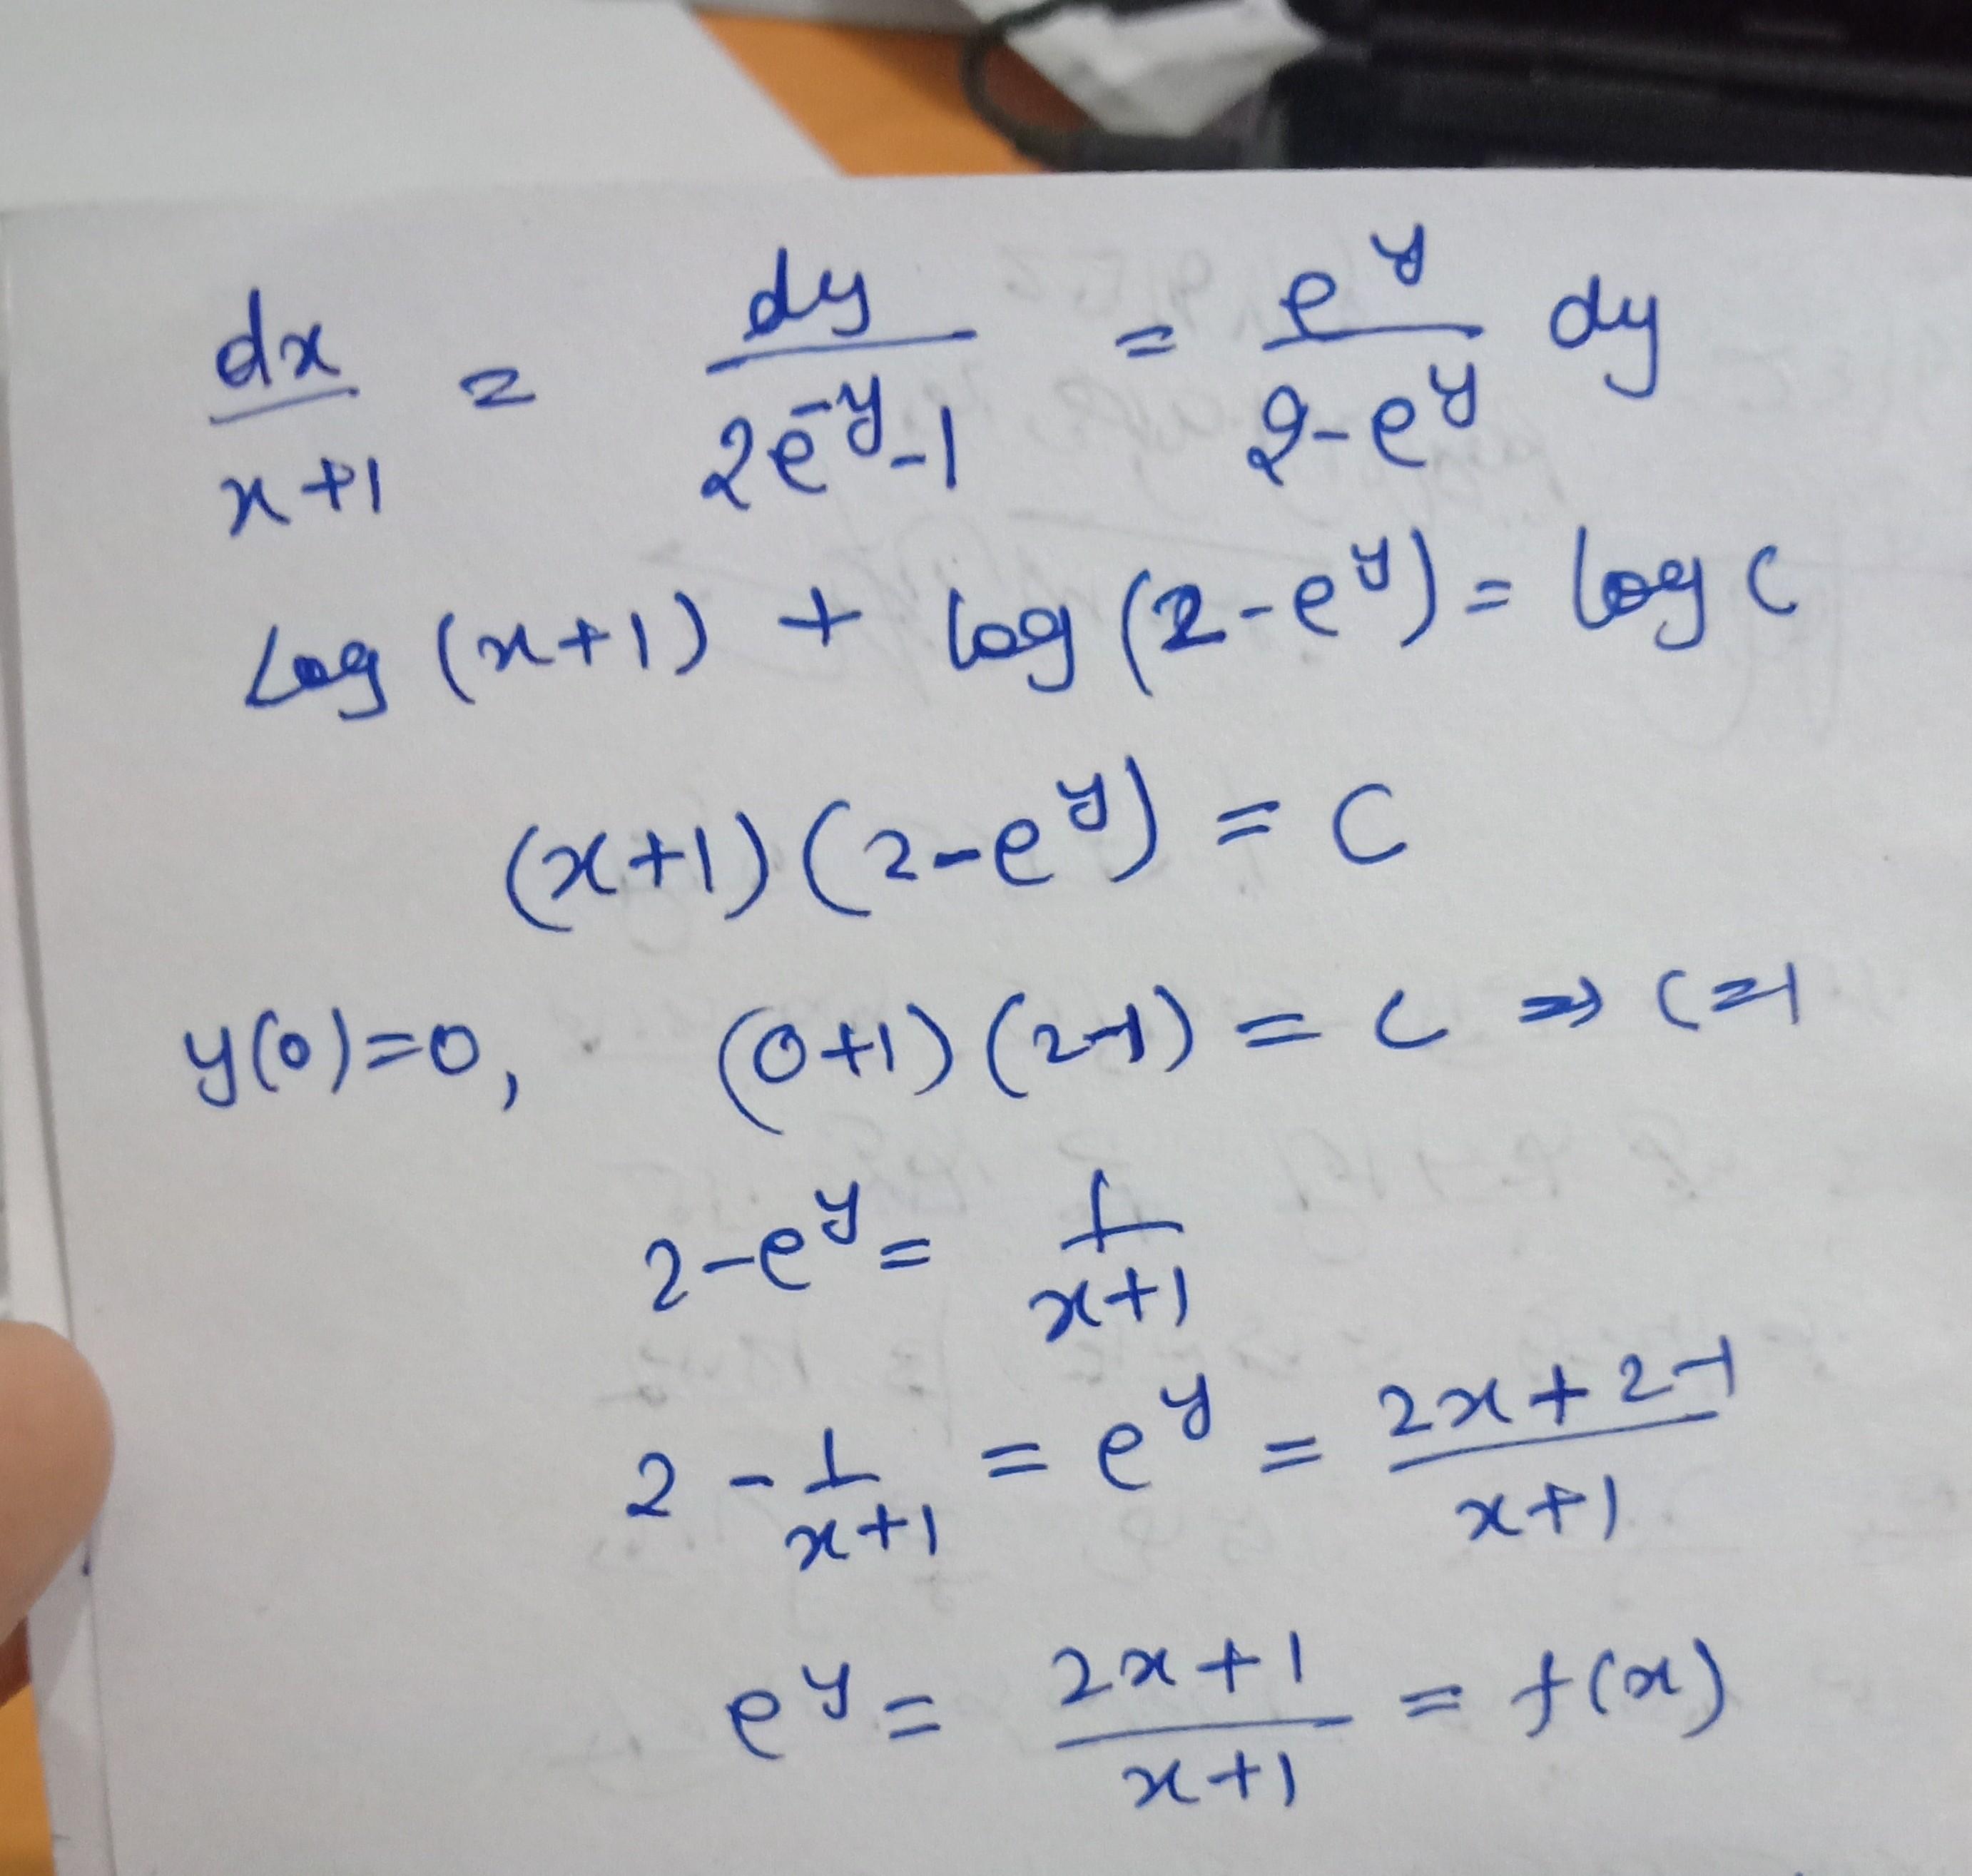 dx/(x+1) = dy/(2e^-y - 1) = e^y/(2-e^y) dy
Log (x+1) + log (2-e^y) = log C
(x+1)(2-e^y) = C
y(0)=0, (0+1)(2-1) = C ⇒ C=1
2-e^y = 1/(x+1)
2 - 1/(x+1) = e^y = (2x+2-1)/(x+1)
e^y = (2x+1)/(x+1) = f(x)